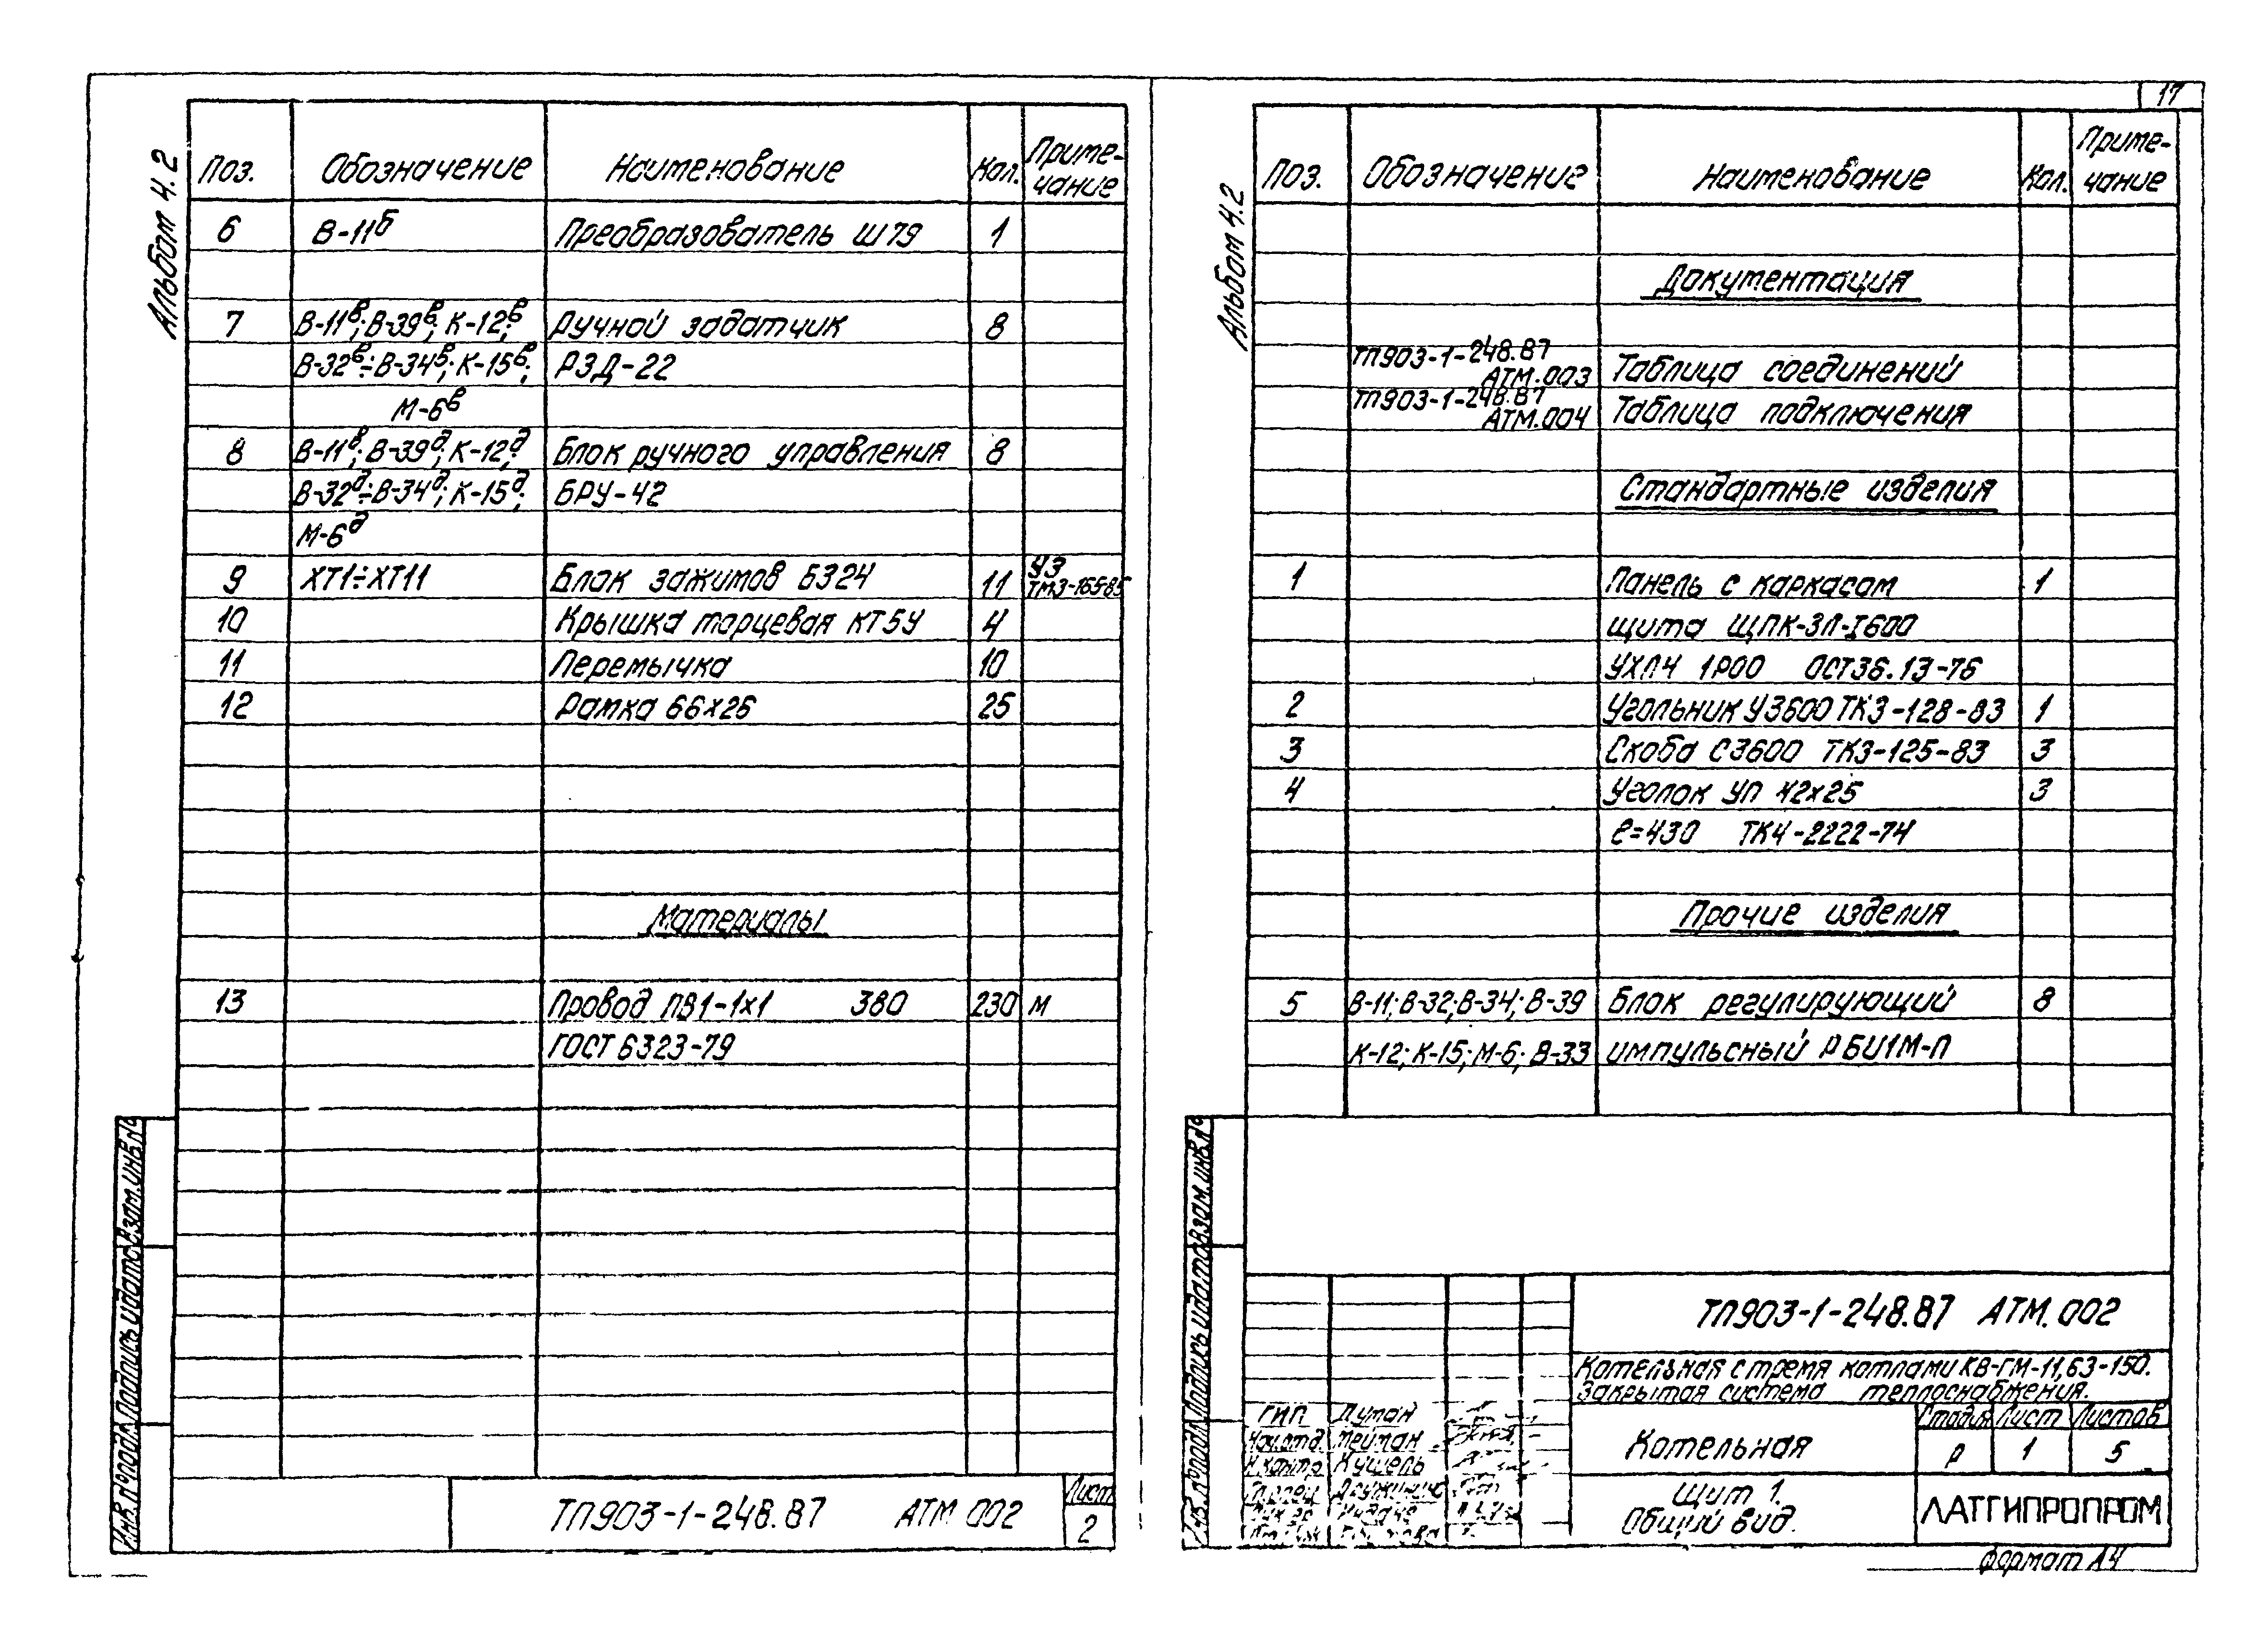 17
Альбом 4.2
Поз. Обозначение Наименование Кол. Приме-
чание
6 В-11б Преобразователь Ш79 1
7 В-11в; В-39в; К-12в; Ручной задатчик 8
В-32в÷В-34в; К-15в; РЗД-22
М-6в
8 В-11в; В-39д; К-12д; Блок ручного управления 8
В-32д÷В-34д; К-15д; БРУ-42
М-6д
9 ХТ1÷ХТ11 Блок зажимов БЗ24 11 УЗ
ТМЗ-165-85
10 Крышка торцевая КТ5У 4
11 Перемычка 10
12 Рамка 66х26 25
Материалы
13 Провод ПВ1-1х1 380 230 м
ГОСТ 6323-79
Взам.инв.№
Подпись и дата
Инв.№подл.
ТП903-1-248.87 АТМ 002
Лист
2
Альбом 4.2
Поз. Обозначение Наименование Кол. Приме-
чание
Документация
ТП903-1-248.87
АТМ.003 Таблица соединений
ТП903-1-248.87
АТМ.004 Таблица подключения
Стандартные изделия
1 Панель с каркасом 1
щита ЩПК-ЗЛ-I600
УХЛ4 1Р00 ОСТ36.13-76
2 Угольник УЗ600 ТК3-128-83 1
3 Скоба СЗ600 ТК3-125-83 3
4 Уголок УП 42х25 3
ℓ=430 ТК4-2222-74
Прочие изделия
5 В-11; В-32; В-34; В-39 Блок регулирующий 8
К-12; К-15; М-6; В-33 импульсный РБИ1М-П
Взам.инв.№
Подпись и дата
Инв.№подл.
ТП903-1-248.87 АТМ.002
Котельная с тремя котлами КВ-ГМ-11,63-150.
Закрытая система теплоснабжения.
ГИП Думан
Нач.отд. Мейман
Н.контр. Кушель
Котельная
Стадия Лист Листов
Р 1 5
Щит 1.
Общий вид.
ЛАТГИПРОПРОМ
Формат А4